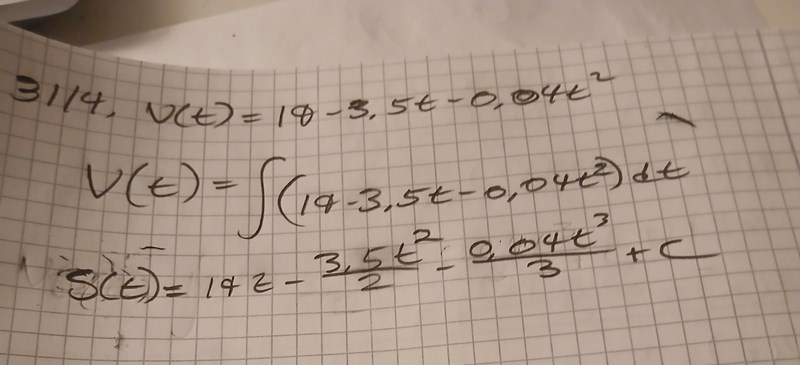 3114. V(t) = 18 - 3,5t - 0,04t²
V(t) = ∫(18 - 3,5t - 0,04t²) dt
S(t) = 18t - 3,5t²/2 - 0,04t³/3 + C